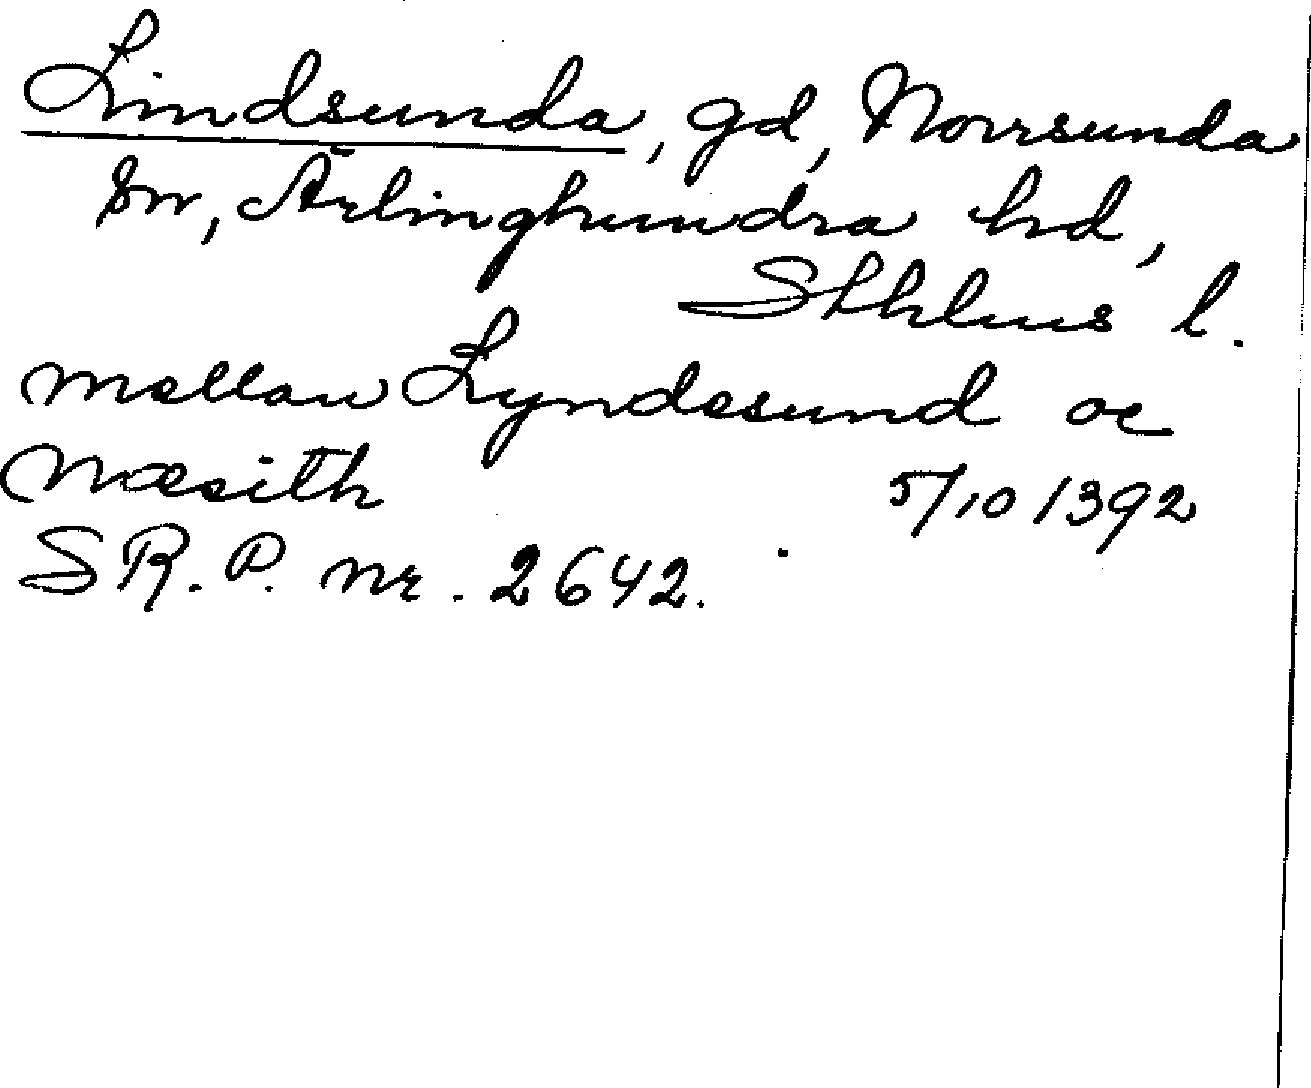 Lindsunda, gd, Norrsunda
sn, Ärlinghundra hd,
Sthlms l.
mellan Lyndesund oc
Næsith 5/10 1392
SR.P. nr. 2642.